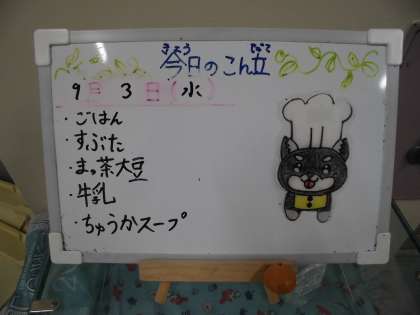 今日のこん立
きょう じゅて
9月 3日（水）
・ごはん
・すぶた
・まっ茶大豆
・牛乳
・ちゅうかスープ